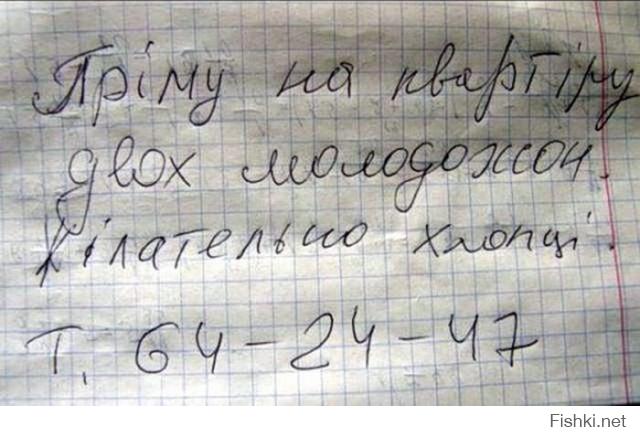 Пріму на квартіру
двох молодожон.
Жілательно хлопці.
Т. 64-24-47
Fishki.net